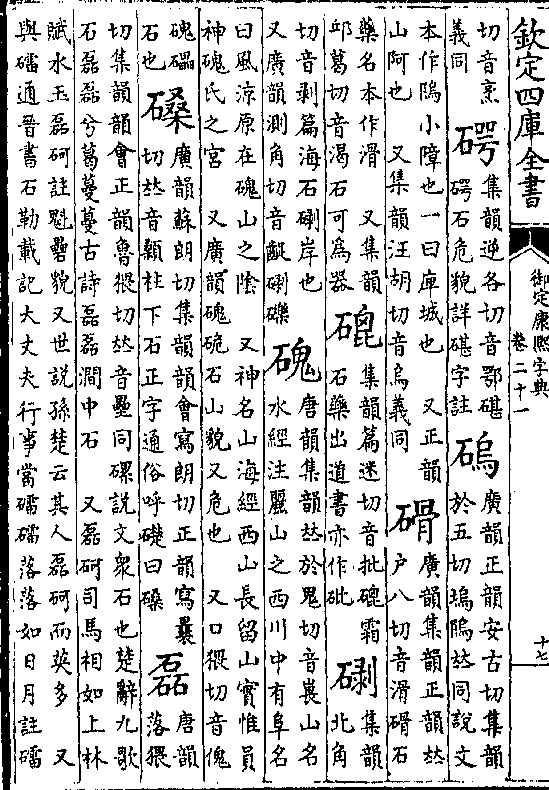 欽定四庫全書
御定康熙字典
卷二十一
十七
切音烹
義同
硆
集韻逆各切音鄂碪
硆石危貌詳碪字註
碼
廣韻正韻安古切集韻
於五切塢隝𠀤同說文
本作隝小障也一曰庳城也 又正韻
山阿也 又集韻汪胡切音烏義同
磆
廣韻集韻正韻𠀤
戶八切音滑磆石
藥名本作滑 又集韻
邱葛切音渴石可為器
磇
集韻篇迷切音批磇霜
石藥出道書亦作砒
𥔱
集韻
北角
切音剥篇海石𥔱岸也
又廣韻測角切音齪𥔱礫
磈
唐韻集韻𠀤於鬼切音㠕山名
水經注麗山之西川中有阜名
曰風涼原在磈山之陰 又神名山海經西山長留山實惟員
神磈氏之宮 又廣韻磈硊石山貌又危也 又口猥切音傀
磈磥
石也
磉
廣韻蘇朗切集韻韻會寫朗切正韻寫曩
切𠀤音顙柱下石正字通俗呼礎曰磉
磊
唐韻
落猥
切集韻韻會正韻魯猥切𠀤音壘同磥說文衆石也楚辭九歌
石磊磊兮葛蔓蔓古詩磊磊澗中石 又磊砢司馬相如上林
賦水玉磊砢註魁礨貌又世說孫楚云其人磊砢而英多 又
與礌通晉書石勒載記大丈夫行事當礌礌落落如日月註礌